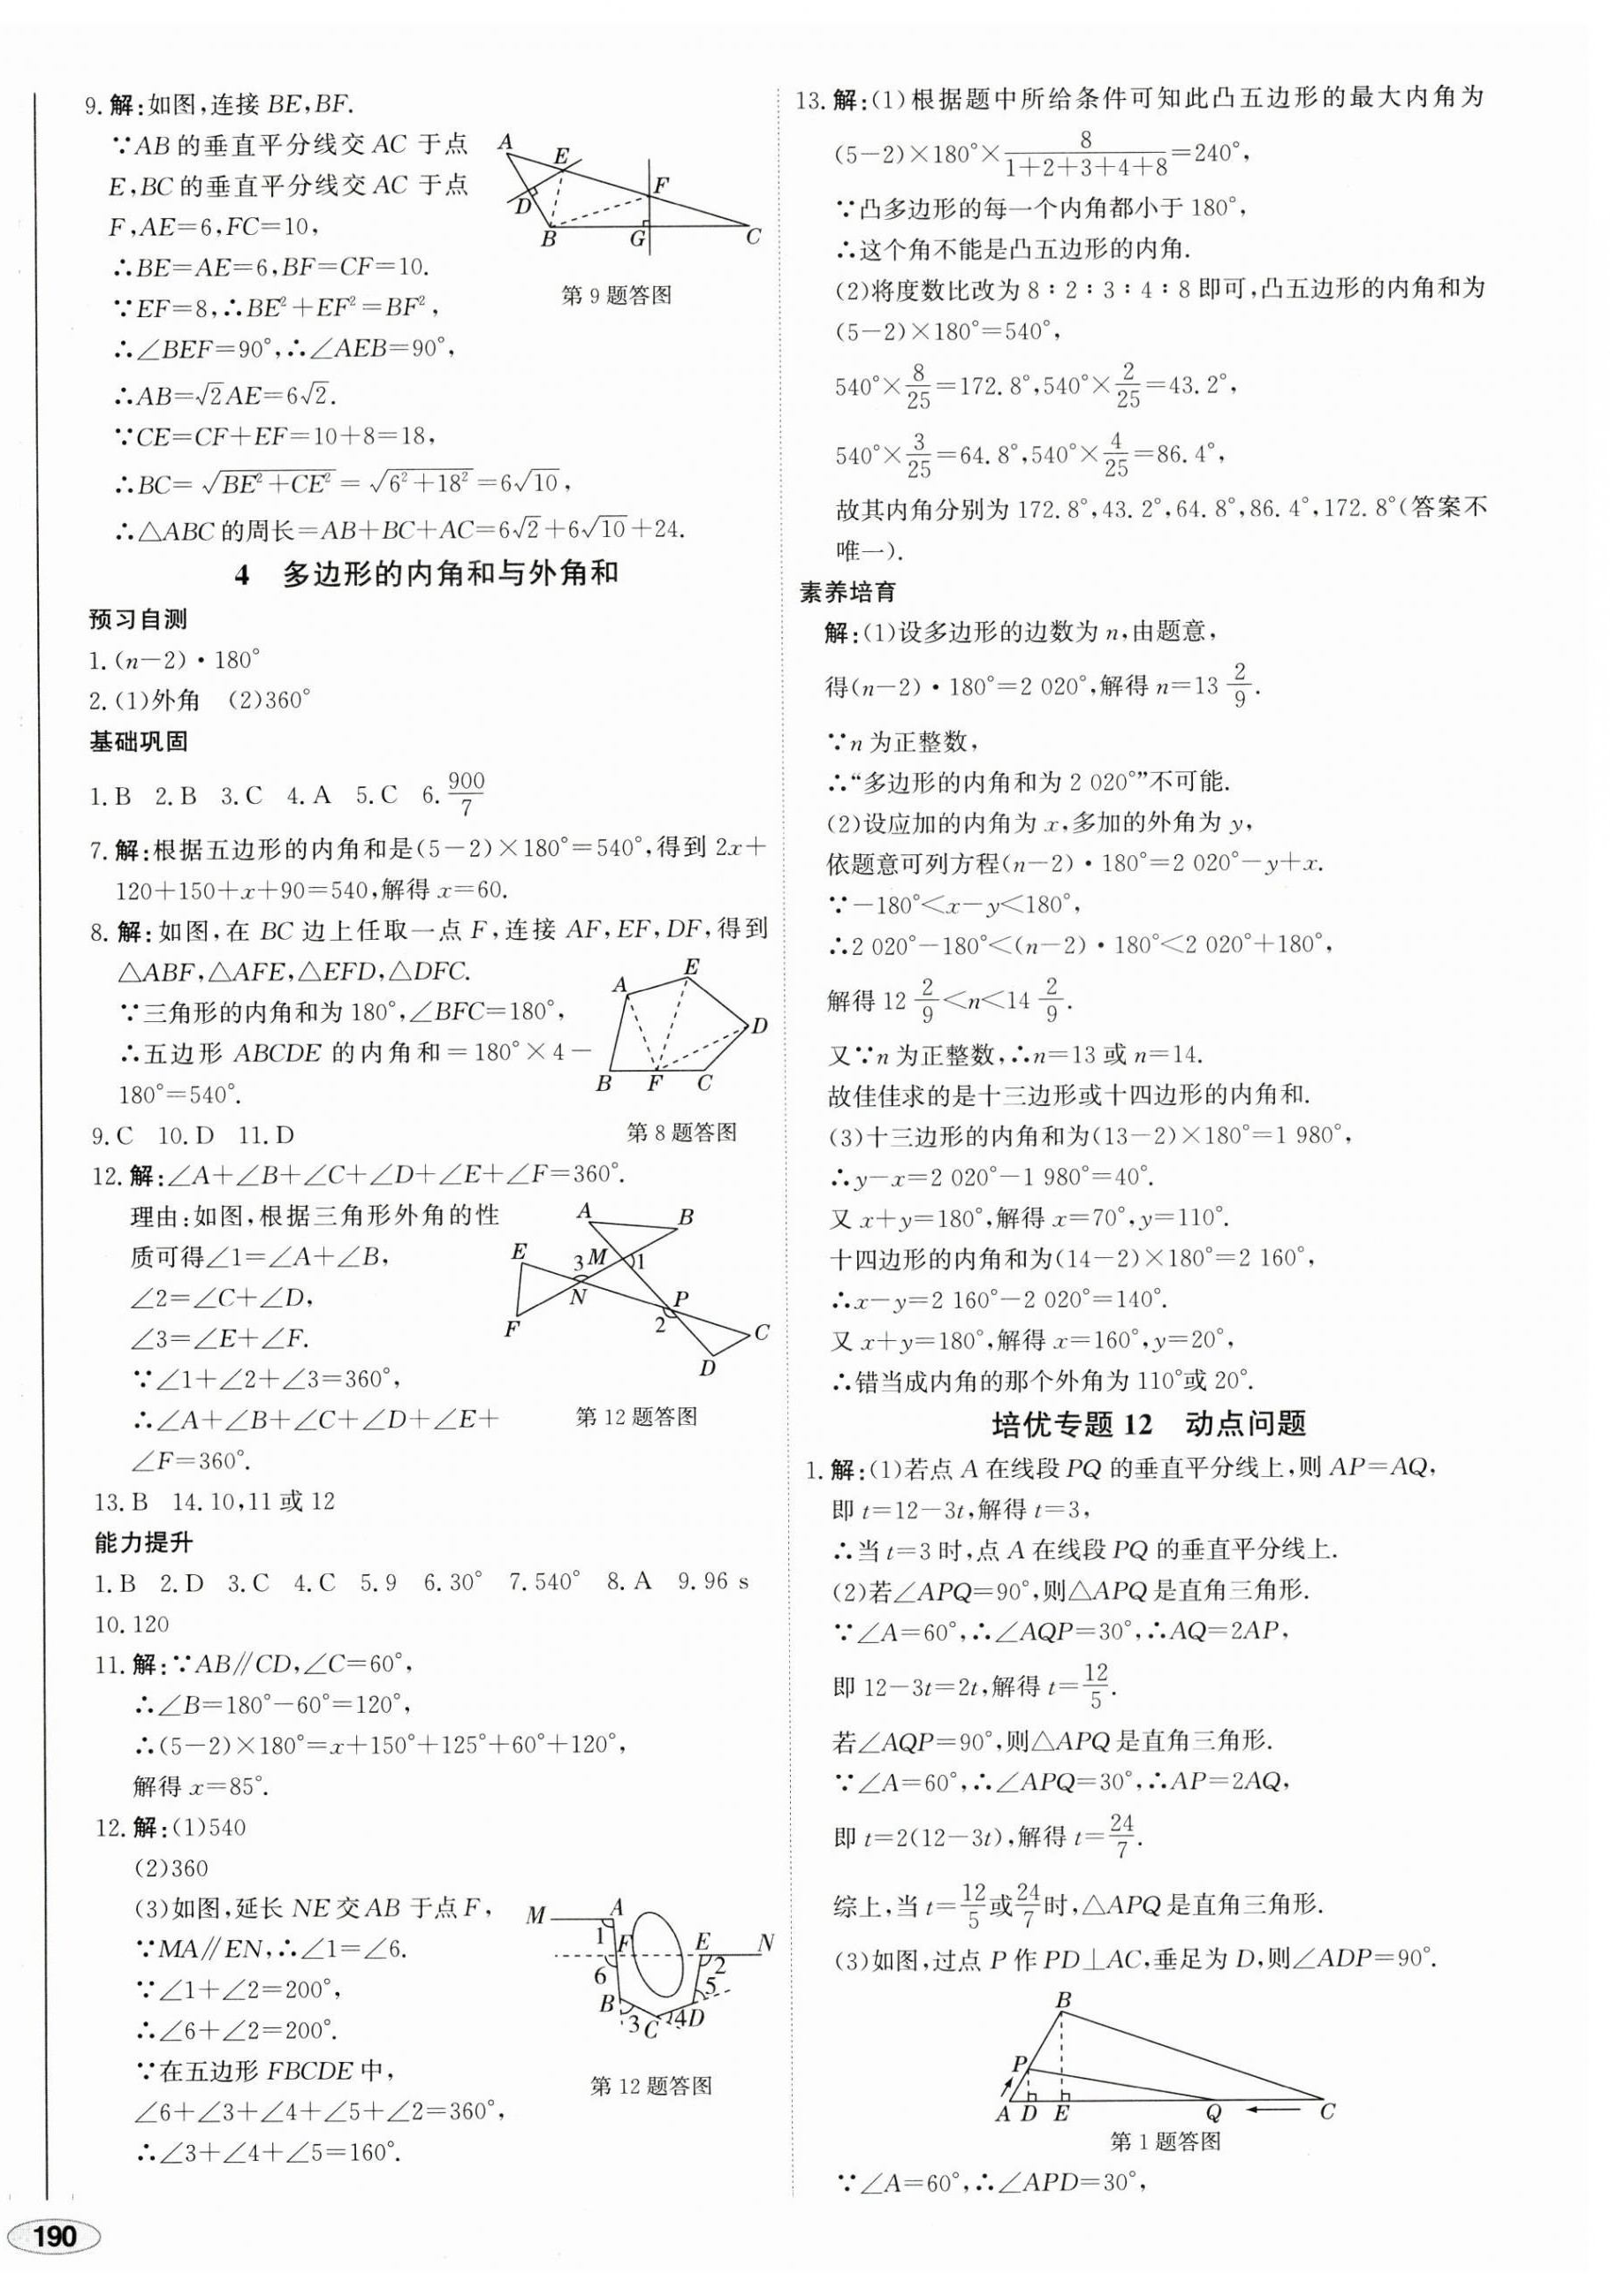 9. 解:如图,连接 BE,BF.
∵AB 的垂直平分线交 AC 于点
E,BC 的垂直平分线交 AC 于点
F,AE=6,FC=10,
∴BE=AE=6,BF=CF=10.
∵EF=8,∴BE²+EF²=BF²,
∴∠BEF=90°,∴∠AEB=90°,
∴AB=√2AE=6√2.
∵CE=CF+EF=10+8=18,
∴BC=√(BE²+CE²)=√(6²+18²)=6√10,
∴△ABC 的周长=AB+BC+AC=6√2+6√10+24.
A
E
F
D
B
G
C
第 9 题答图
4 多边形的内角和与外角和
预习自测
1. (n-2)·180°
2. (1)外角 (2)360°
基础巩固
1. B 2. B 3. C 4. A 5. C 6. 900/7
7. 解:根据五边形的内角和是(5-2)×180°=540°,得到 2x+
120+150+x+90=540,解得 x=60.
8. 解:如图,在 BC 边上任取一点 F,连接 AF,EF,DF,得到
△ABF,△AFE,△EFD,△DFC.
∵三角形的内角和为 180°,∠BFC=180°,
∴五边形 ABCDE 的内角和=180°×4-
180°=540°.
E
A
D
B F C
第 8 题答图
9. C 10. D 11. D
12. 解:∠A+∠B+∠C+∠D+∠E+∠F=360°.
理由:如图,根据三角形外角的性
质可得∠1=∠A+∠B,
∠2=∠C+∠D,
∠3=∠E+∠F.
∵∠1+∠2+∠3=360°,
∴∠A+∠B+∠C+∠D+∠E+
∠F=360°.
A B
E 3 M 1
N P
F 2 C
D
第 12 题答图
13. B 14. 10,11 或 12
能力提升
1. B 2. D 3. C 4. C 5. 9 6. 30° 7. 540° 8. A 9. 96 s
10. 120
11. 解:∵AB∥CD,∠C=60°,
∴∠B=180°-60°=120°,
∴(5-2)×180°=x+150°+125°+60°+120°,
解得 x=85°.
12. 解:(1)540
(2)360
(3)如图,延长 NE 交 AB 于点 F,
∵MA∥EN,∴∠1=∠6.
∵∠1+∠2=200°,
∴∠6+∠2=200°.
∵在五边形 FBCDE 中,
∠6+∠3+∠4+∠5+∠2=360°,
∴∠3+∠4+∠5=160°.
M A
1 F E N
6 2
B 5
3 C 4 D
第 12 题答图
190
13. 解:(1)根据题中所给条件可知此凸五边形的最大内角为
(5-2)×180°×8/(1+2+3+4+8)=240°,
∵凸多边形的每一个内角都小于 180°,
∴这个角不能是凸五边形的内角.
(2)将度数比改为 8∶2∶3∶4∶8 即可,凸五边形的内角和为
(5-2)×180°=540°,
540°×8/25=172.8°,540°×2/25=43.2°,
540°×3/25=64.8°,540°×4/25=86.4°,
故其内角分别为 172.8°,43.2°,64.8°,86.4°,172.8°(答案不
唯一).
素养培育
解:(1)设多边形的边数为 n,由题意,
得(n-2)·180°=2 020°,解得 n=13 2/9.
∵n 为正整数,
∴“多边形的内角和为 2 020°”不可能.
(2)设应加的内角为 x,多加的外角为 y,
依题意可列方程(n-2)·180°=2 020°-y+x.
∵-180°<x-y<180°,
∴2 020°-180°<(n-2)·180°<2 020°+180°,
解得 12 2/9<n<14 2/9.
又∵n 为正整数,∴n=13 或 n=14.
故佳佳求的是十三边形或十四边形的内角和.
(3)十三边形的内角和为(13-2)×180°=1 980°,
∴y-x=2 020°-1 980°=40°.
又 x+y=180°,解得 x=70°,y=110°.
十四边形的内角和为(14-2)×180°=2 160°,
∴x-y=2 160°-2 020°=140°.
又 x+y=180°,解得 x=160°,y=20°,
∴错当成内角的那个外角为 110°或 20°.
培优专题 12 动点问题
1. 解:(1)若点 A 在线段 PQ 的垂直平分线上,则 AP=AQ,
即 t=12-3t,解得 t=3,
∴当 t=3 时,点 A 在线段 PQ 的垂直平分线上.
(2)若∠APQ=90°,则△APQ 是直角三角形.
∵∠A=60°,∴∠AQP=30°,∴AQ=2AP,
即 12-3t=2t,解得 t=12/5.
若∠AQP=90°,则△APQ 是直角三角形.
∵∠A=60°,∴∠APQ=30°,∴AP=2AQ,
即 t=2(12-3t),解得 t=24/7.
综上,当 t=12/5或24/7时,△APQ 是直角三角形.
(3)如图,过点 P 作 PD⊥AC,垂足为 D,则∠ADP=90°.
B
P
A D E Q C
第 1 题答图
∵∠A=60°,∴∠APD=30°,